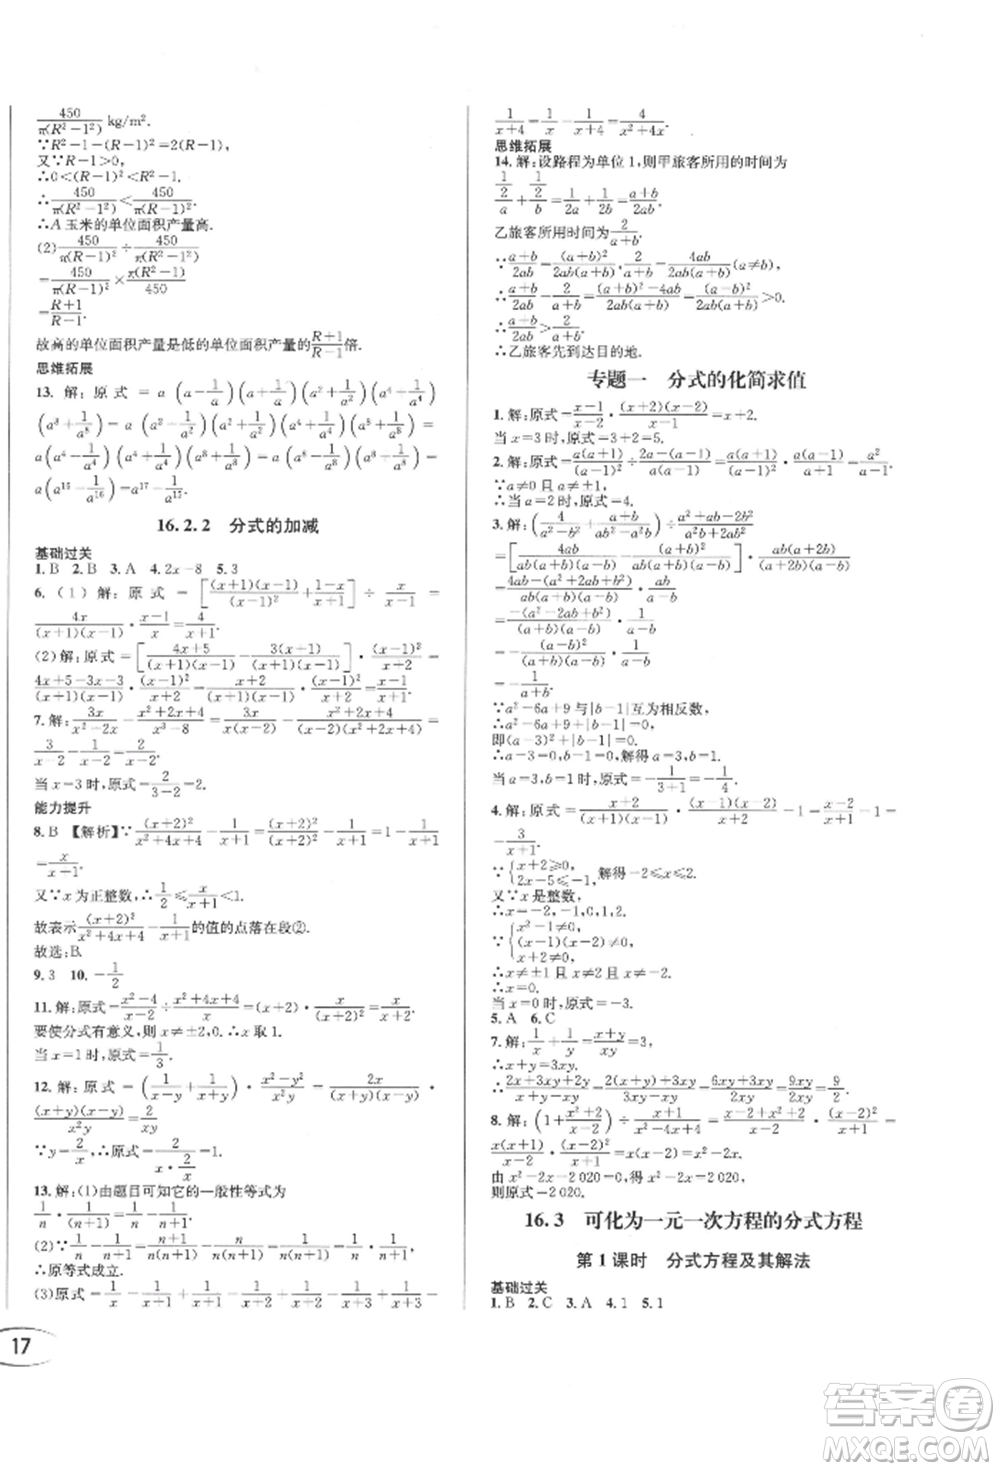 450/(π(R²-1²)) kg/m².
∵R²-1-(R-1)²=2(R-1),
又∵R-1>0,
∴0<(R-1)²<R²-1,
∴450/(π(R²-1²))<450/(π(R-1)²).
∴A玉米的单位面积产量高.
(2)450/(π(R-1)²)÷450/(π(R²-1²))
=450/(π(R-1)²)×π(R²-1²)/450
=(R+1)/(R-1).
故高的单位面积产量是低的单位面积产量的(R+1)/(R-1)倍.
思维拓展
13.解:原式=a(a-1/a)(a+1/a)(a²+1/a²)(a⁴+1/a⁴)
(a⁸+1/a⁸)=a(a²-1/a²)(a²+1/a²)(a⁴+1/a⁴)(a⁸+1/a⁸)=
a(a⁴-1/a⁴)(a⁴+1/a⁴)(a⁸+1/a⁸)=a(a⁸-1/a⁸)(a⁸+1/a⁸)=
a(a¹⁶-1/a¹⁶)=a¹⁷-1/a¹⁵.
16.2.2 分式的加减
基础过关
1.B 2.B 3.A 4.2x-8 5.3
6.(1)解:原式=[(x+1)(x-1)/((x+1)(x-1))+(1-x)/...]÷x/(x-1)=
4x/((x+1)(x-1))·(x-1)/x=4/(x+1).
(2)解:原式=[(4x+5)/((x+1)(x-1))-3(x+1)/((x+1)(x-1))]·(x-1)²/(x+2)=
(4x+5-3x-3)/((x+1)(x-1))·(x-1)²/(x+2)=(x+2)/((x+1)(x-1))·(x-1)²/(x+2)=(x-1)/(x+1).
7.解:3x/(x²-2x)-(x²+2x+4)/(x³-8)=3x/(x(x-2))-(x²+2x+4)/((x-2)(x²+2x+4))=
3/(x-2)-1/(x-2)=2/(x-2).
当x=3时,原式=2/(3-2)=2.
能力提升
8.B 【解析】∵(x+2)²/(x²+4x+4)-1/(x+1)=(x+2)²/(x+2)²-1/(x+1)=1-1/(x+1)=
x/(x+1).
又∵x为正整数,∴1/2≤x/(x+1)<1.
故表示(x+2)²/(x²+4x+4)-1/(x+1)的值的点落在段②.
故选:B.
9.3 10.-1/2
11.解:原式=(x²-4)/(x-2)÷(x²+4x+4)/x·...
要使分式有意义,则x≠±2,0.∴x取1.
当x=1时,原式=1/3.
12.解:原式=(1/(x-y)+1/(x+y))÷...
(x+y)(x-y)/(x²y)=2/(xy).
∵y=2/x,∴原式=2/(x·2/x)=1.
13.解:(1)由题目可知它的一般性等式为
1/n·1/(n+1)=1/n-1/(n+1).
(2)∵1/n-1/(n+1)=(n+1)/(n(n+1))-n/(n(n+1))=1/(n(n+1))=1/n·1/(n+1),
∴原等式成立.
(3)原式=1/x-1/(x+1)+1/(x+1)-1/(x+2)+1/(x+2)-1/(x+3)+1/(x+3)-
1/(x+4)=1/x-1/(x+4)=4/(x²+4x).
思维拓展
14.解:设路程为单位1,则甲旅客所用的时间为
(1/2)/a+(1/2)/b=1/(2a)+1/(2b)=(a+b)/(2ab).
乙旅客所用时间为2/(a+b).
∵(a+b)/(2ab)-2/(a+b)=(a+b)²/(2ab(a+b))-4ab/(2ab(a+b))(a≠b),
∴((a+b)²-4ab)/(2ab(a+b))=(a-b)²/(2ab(a+b))>0.
∴(a+b)/(2ab)>2/(a+b).
∴乙旅客先到达目的地.
专题一 分式的化简求值
1.解:原式=(x-1)/(x-2)·(x+2)(x-2)/(x-1)=x+2.
当x=3时,原式=3+2=5.
2.解:原式=a(a+1)/(a-1)²÷(2a-(a-1))/(a(a-1))=a(a+1)/(a-1)²·a(a-1)/(a+1)=a²/(a-1).
∵a≠0且a≠±1,
∴当a=2时,原式=4.
3.解:(4/(a²-b²)-(a+b)/(a²b-ab²))÷(a²+ab-2b²)/(a²b+2ab²)
=[4ab/(ab(a+b)(a-b))-(a+b)²/(ab(a+b)(a-b))]·ab(a+2b)/((a+2b)(a-b))
=(4ab-a²-2ab-b²)/(ab(a+b)(a-b))·ab/(a-b)
=-(a²-2ab+b²)/((a+b)(a-b))·1/(a-b)
=-1/(a+b).
∵a²-6a+9与|b-1|互为相反数,
∴a²-6a+9+|b-1|=0.
即(a-3)²+|b-1|=0.
∴a-3=0,b-1=0,解得a=3,b=1.
当a=3,b=1时,原式=-1/(3+1)=-1/4.
4.解:原式=(x+2)/(x+1)²·(x-1)(x+1)/(x+2)-1=(x-1)/(x+1)-1=
∵{x+2≥0,2x-5≤-1,解得-2≤x≤2.
又∵x是整数,
∴x=-2,-1,0,1,2.
∵{x²-1≠0,(x-1)(x+2)≠0,
∴x≠±1且x≠-2.
∴当x=0时,原式=-3.
5.A 6.C
7.解:∵1/x+1/y=(x+y)/(xy)=3,
∴x+y=3xy.
∴(2x+3xy+2y)/(xy)=(2(x+y)+3xy)/(xy)=(6xy+3xy)/(xy)=9xy/(xy)=9.
8.解:(1+1/(x-2))÷(x²-1)/(x²-4x+4)·(x²+x)=(x-1)/(x-2)·(x-2)²/((x-1)(x+1))·
x(x+1)=x(x-2)=x²-2x.
由x²-2x-2 020=0,得x²-2x=2 020,
则原式=2 020.
16.3 可化为一元一次方程的分式方程
第1课时 分式方程及其解法
基础过关
1.B 2.C 3.A 4.1 5.1
17
答案圈
MXQE.COM